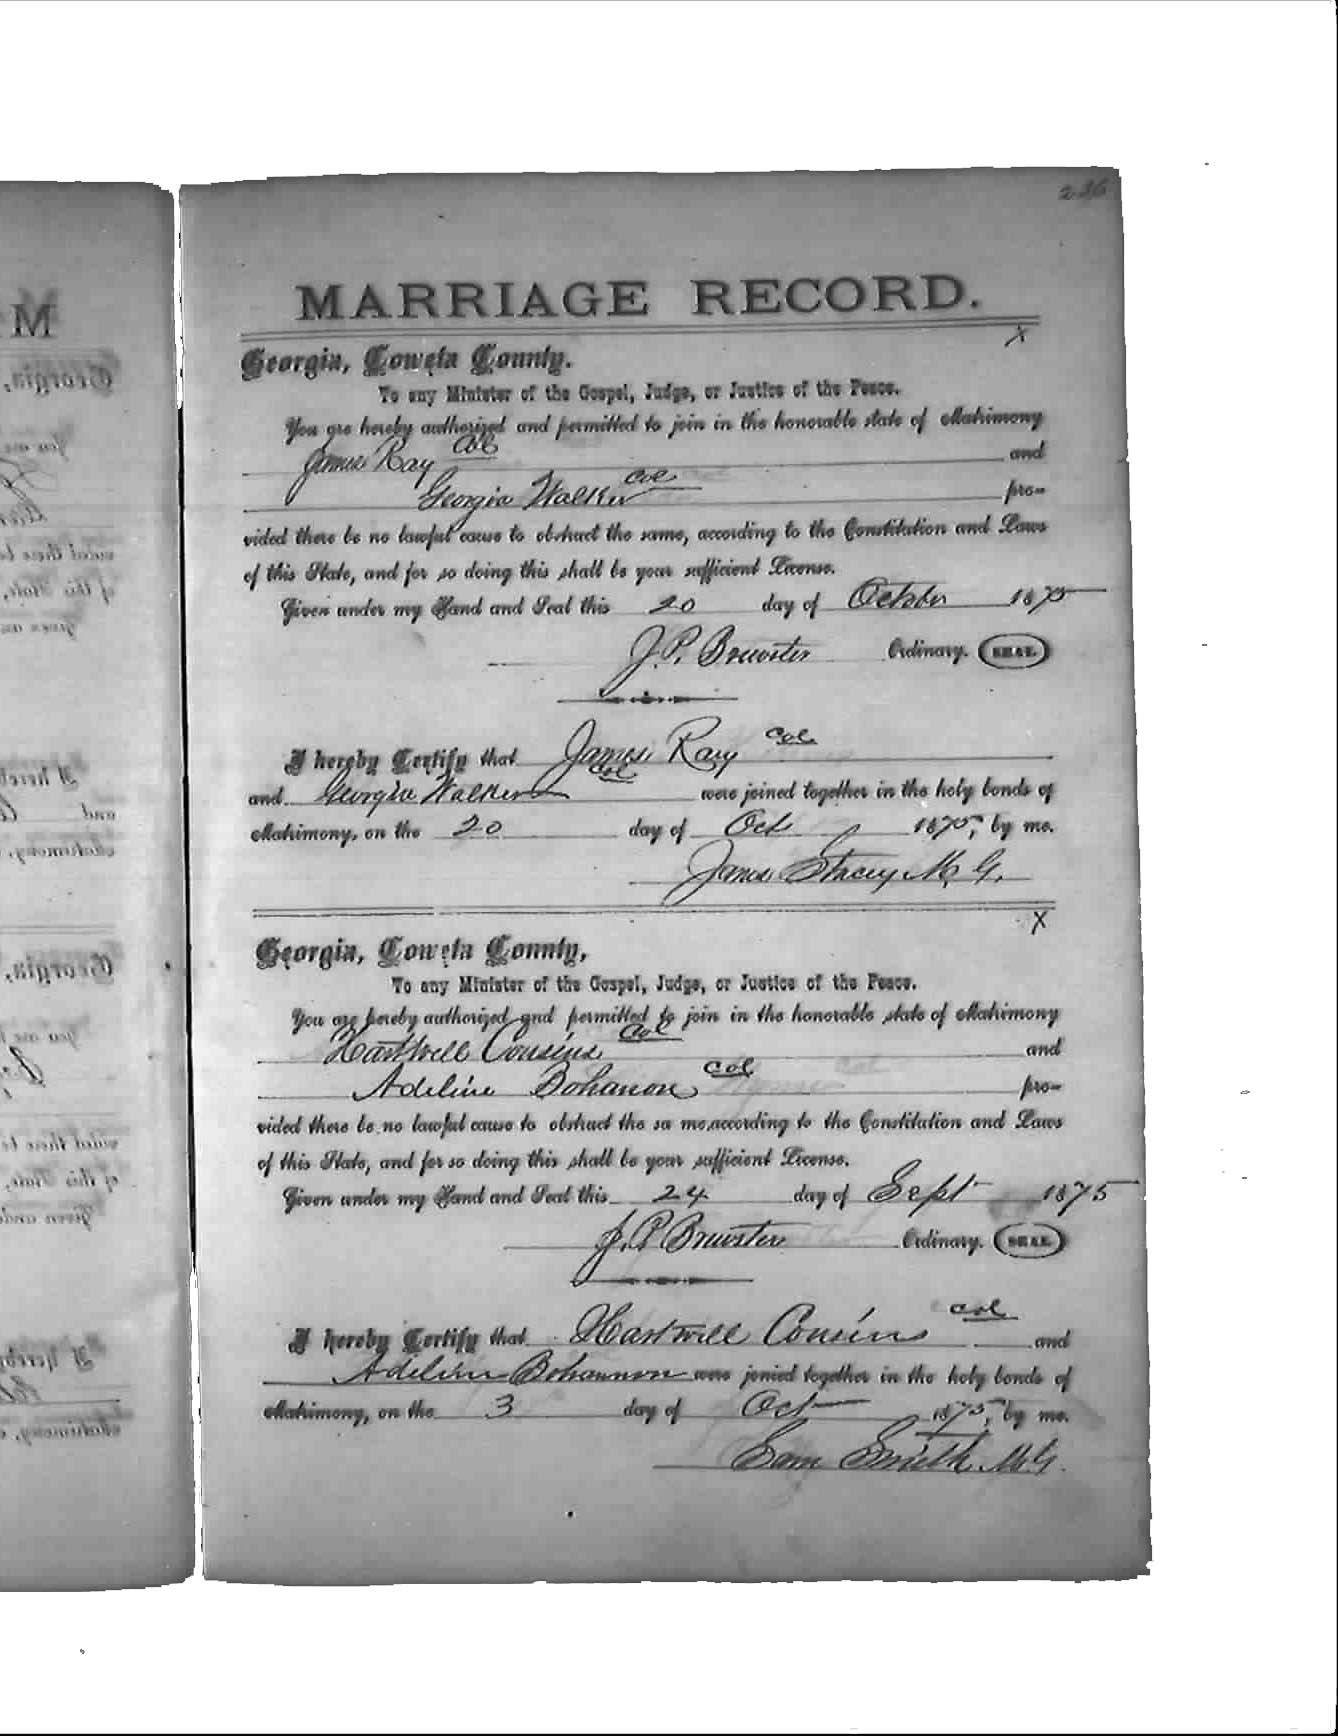 236
MARRIAGE RECORD.
X
Georgia, Coweta County.
To any Minister of the Gospel, Judge, or Justice of the Peace.
You are hereby authorized and permitted to join in the honorable state of Matrimony
James Ray Col and
Georgia Walker Col pro-
vided there be no lawful cause to obstruct the same, according to the Constitution and Laws
of this State, and for so doing this shall be your sufficient License.
Given under my Hand and Seal this 20 day of October 1875
J. P. Brewster Ordinary. SEAL.
I hereby Certify that James Ray Col
and Georgia Walker Col were joined together in the holy bonds of
Matrimony, on the 20 day of Oct 1875, by me.
James Stacey M. G.
X
Georgia, Coweta County,
To any Minister of the Gospel, Judge, or Justice of the Peace.
You are hereby authorized and permitted to join in the honorable state of Matrimony
Hartwell Cousins Col and
Adeline Bohanon Col pro-
vided there be no lawful cause to obstruct the sa me, according to the Constitution and Laws
of this State, and for so doing this shall be your sufficient License.
Given under my Hand and Seal this 24 day of Sept 1875
J. P. Brewster Ordinary. SEAL.
I hereby Certify that Hartwell Cousins Col and
Adeline Bohannon were jonied together in the holy bonds of
Matrimony, on the 3 day of Oct 1875, by me.
Sam Smith M.G.